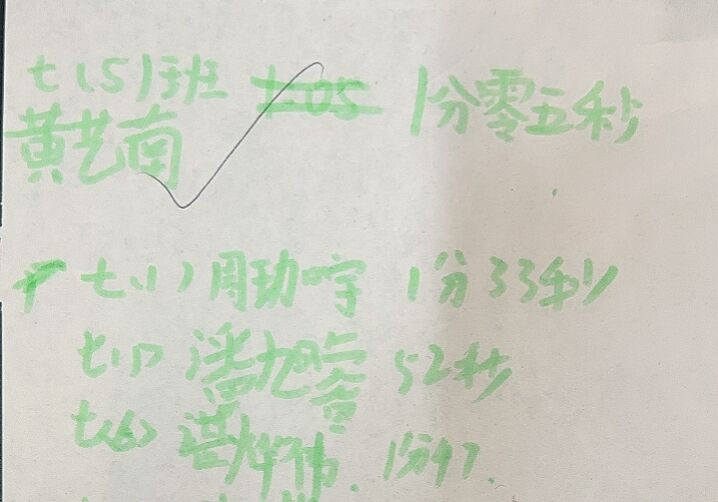 七(5)班 1:05 1分零五秒
黄艺南
七(1)周 宇 1分33秒
七(1)潘旭 52秒
七(6) 伟. 1分47.